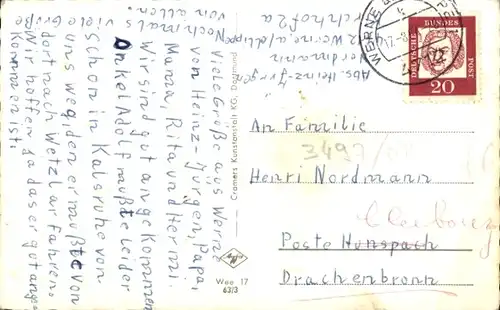 Viele Grüße aus Werne
von Heinz-Jürgen, Papa,
Mama, Rita und Hermi.
Wir sind gut angekommen
Onkel Adolf mußte leider
schon in Kalsruhe von
uns weg, den er mußte von
dort nach Wetzlar fahren.
Wir hoffen ja das er gut ange-
kommen ist.
Nochmals viele Grü
von allen.
Abs. Heinz-Jürgen
Nordmann
Werne a/d Lippe
Kirchhof 2a
Cramers Kunstanstalt KG, Dortmund
Wee 17
63/3
WERNE
DEUTSCHE
BUNDES
POST
20
An Familie
3497
Henri Nordmann
Cleebourg
Poste Hunspach
Drachenbronn